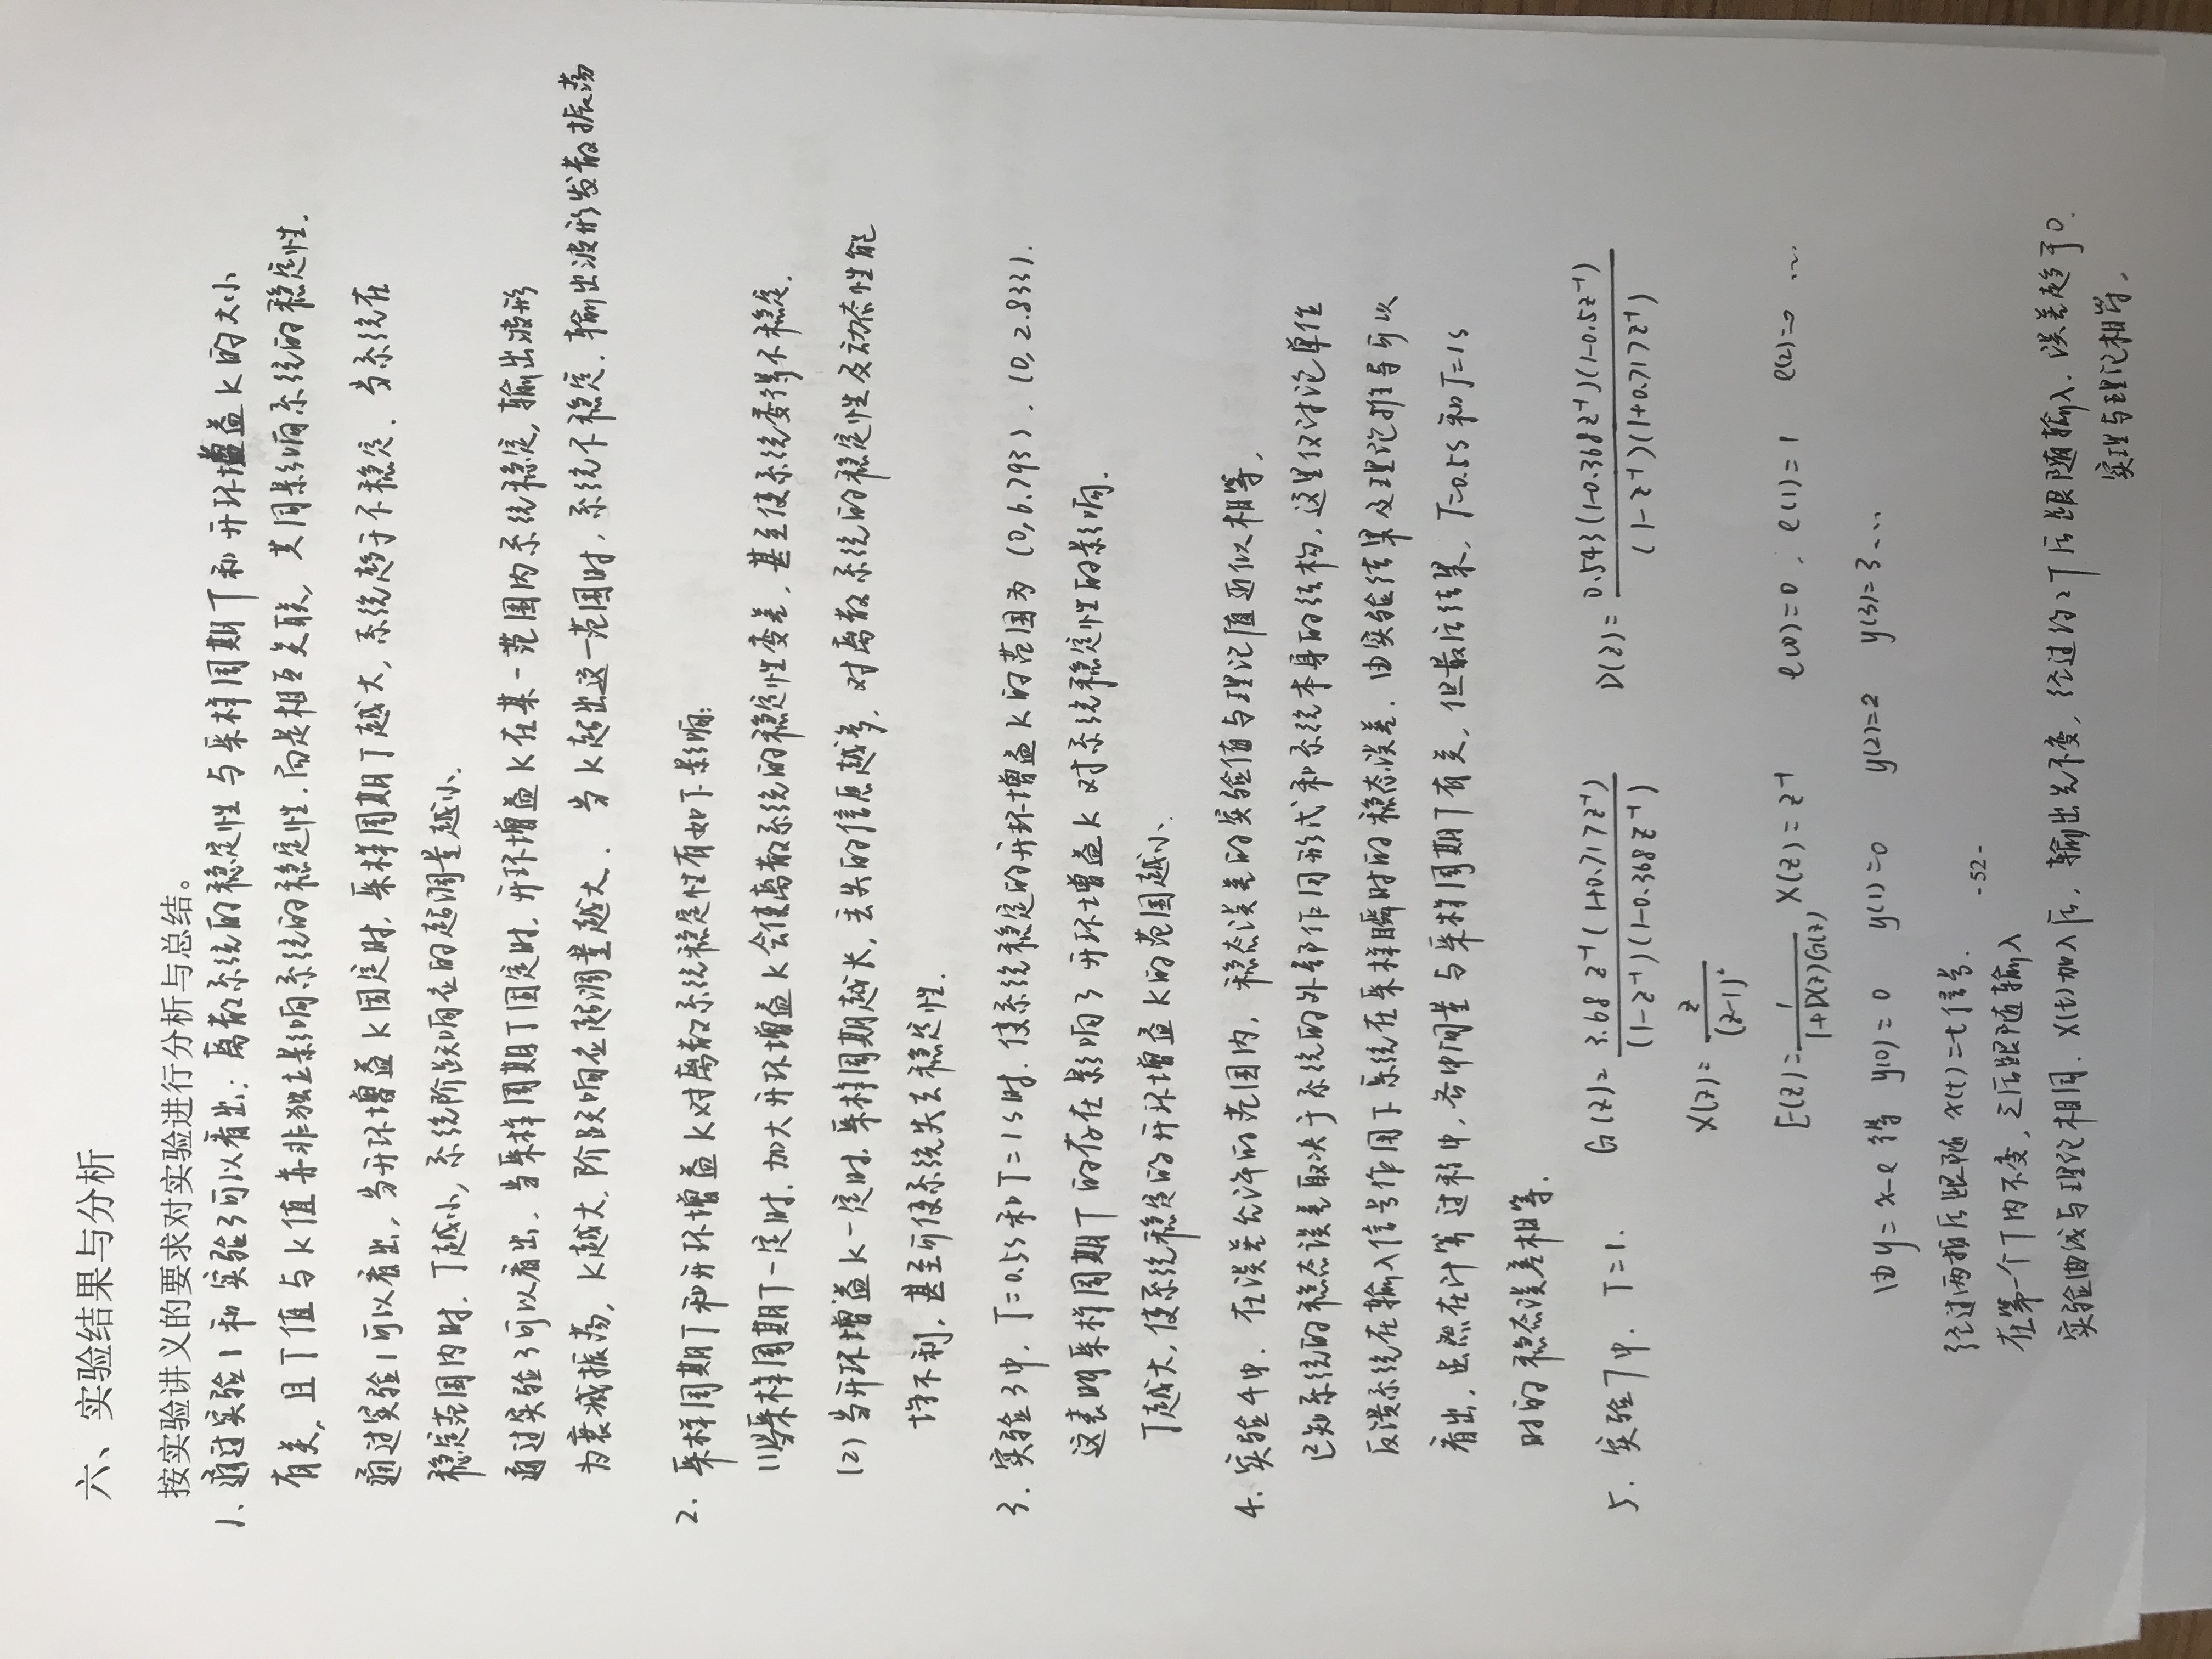 六、实验结果与分析
按实验讲义的要求对实验进行分析与总结。
1、通过实验1和实验3可以看出：离散系统的稳定性与采样周期T和开环增益K的大小
有关，且T值与K值并非独立影响系统的稳定性.而是相互关联,共同影响系统的稳定性.
通过实验1可以看出,当开环增益K固定时,采样周期T越大,系统趋于不稳定.当系统在
稳定范围内时.T越小,系统阶跃响应的超调量越小.
通过实验3可以看出,当采样周期T固定时,开环增益K在某一范围内系统稳定,输出波形
为衰减振荡,K越大,阶跃响应超调量越大.当K超出这一范围时,系统不稳定.输出波形发散振荡
2.采样周期T和开环增益K对离散系统稳定性有如下影响:
(1)当采样周期T一定时,加大开环增益K会使离散系统的稳定性变差,甚至使系统变得不稳定.
(2)当开环增益K一定时.采样周期越长,丢失的信息越多,对离散系统的稳定性及动态性能
均不利,甚至可使系统失去稳定性.
3.实验3中,T=0.5s和T=1s时.使系统稳定的开环增益K的范围为(0,6.793).(0,2.833).
这表明采样周期T的存在影响了开环增益K对系统稳定性的影响.
T越大,使系统稳定的开环增益K的范围越小.
4.实验4中.在误差允许的范围内,稳态误差的实验值与理论值近似相等,
已知系统的稳态误差取决于系统的外部作用形式和系统本身的结构,这里仅讨论单位
反馈系统在输入信号作用下系统在采样瞬时的稳态误差.由实验结果及理论推导可以
看出,虽然在计算过程中,各中间量与采样周期T有关,但最后结果,T=0.5s和T=1s
时的稳态误差相等.
5.实验7中.T=1. G(z)=3.68z⁻¹(1+0.717z⁻¹)/(1-z⁻¹)(1-0.368z⁻¹) D(z)=0.543(1-0.368z⁻¹)(1-0.5z⁻¹)/(1-z⁻¹)(1+0.717z⁻¹)
X(z)=z/(z-1)²
E(z)=1/1+D(z)G(z) X(z)=z⁻¹ e(0)=0, e(1)=1 e(2)=0 ...
由y=x-e得 y(0)=0 y(1)=0 y(2)=2 y(3)=3...
经过两拍后跟随x(t)=t信号.
- 52 -
在第一个T内不变,之后跟随输入
实验曲线与理论相同.X(t)加入后,输出先不变,经过约2T后跟随输入.误差趋于0.
实理与理论相符.